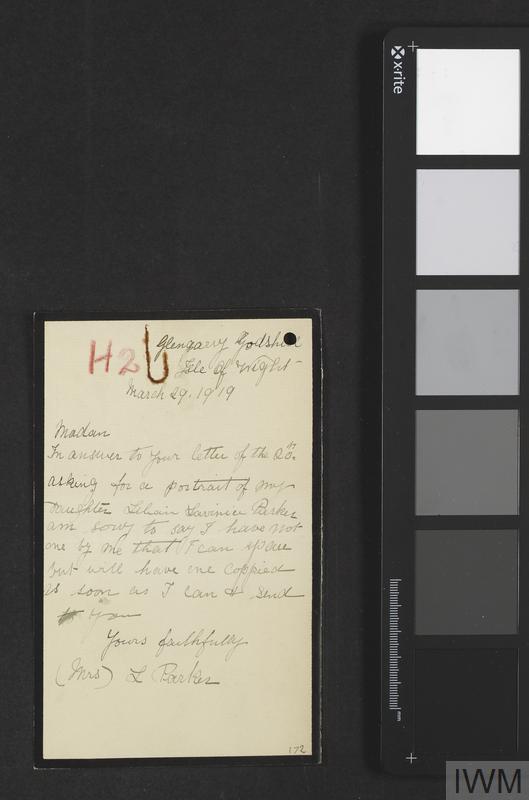 H2
Glengarry Godshill
Isle of Wight
March 29. 1919
Madam
In answer to your letter of the 20th
asking for a portrait of my
daughter Lilian Lavinia Parker
am sorry to say I have not
one by me that I can spare
but will have one coppied
as soon as I can & send
to you
Yours faithfully
(Mrs) L Parker
172
x-rite
mm
IWM